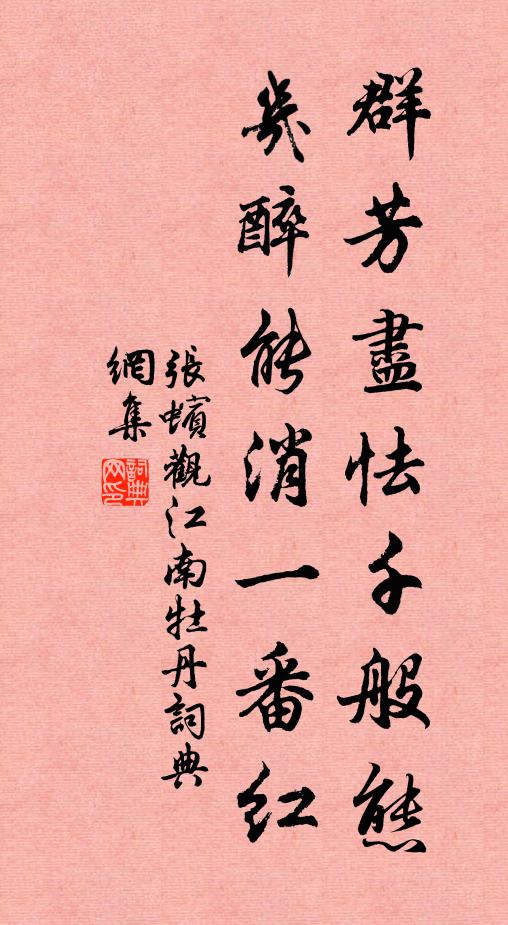 群芳盡怯千般態
幾醉能消一番紅
張蠙觀江南牡丹詞典
網集
詞典
网印